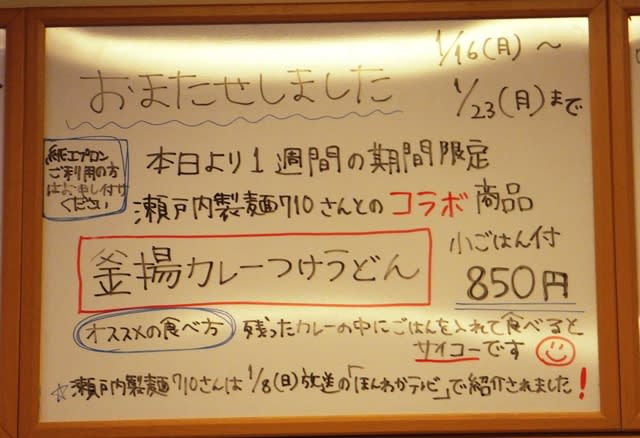 1/16(月)～
おまたせしました
1/23(月)まで
紙エプロン
ご利用の方
はお申し付け
ください
本日より1週間の期間限定
瀬戸内製麺710さんとのコラボ商品
釜揚カレーつけうどん
小ごはん付
850円
オススメの食べ方
残ったカレーの中にごはんを入れて食べると
サイコーです
☆瀬戸内製麺710さんは1/8(日)放送の「ほんわかテレビ」で紹介されました!